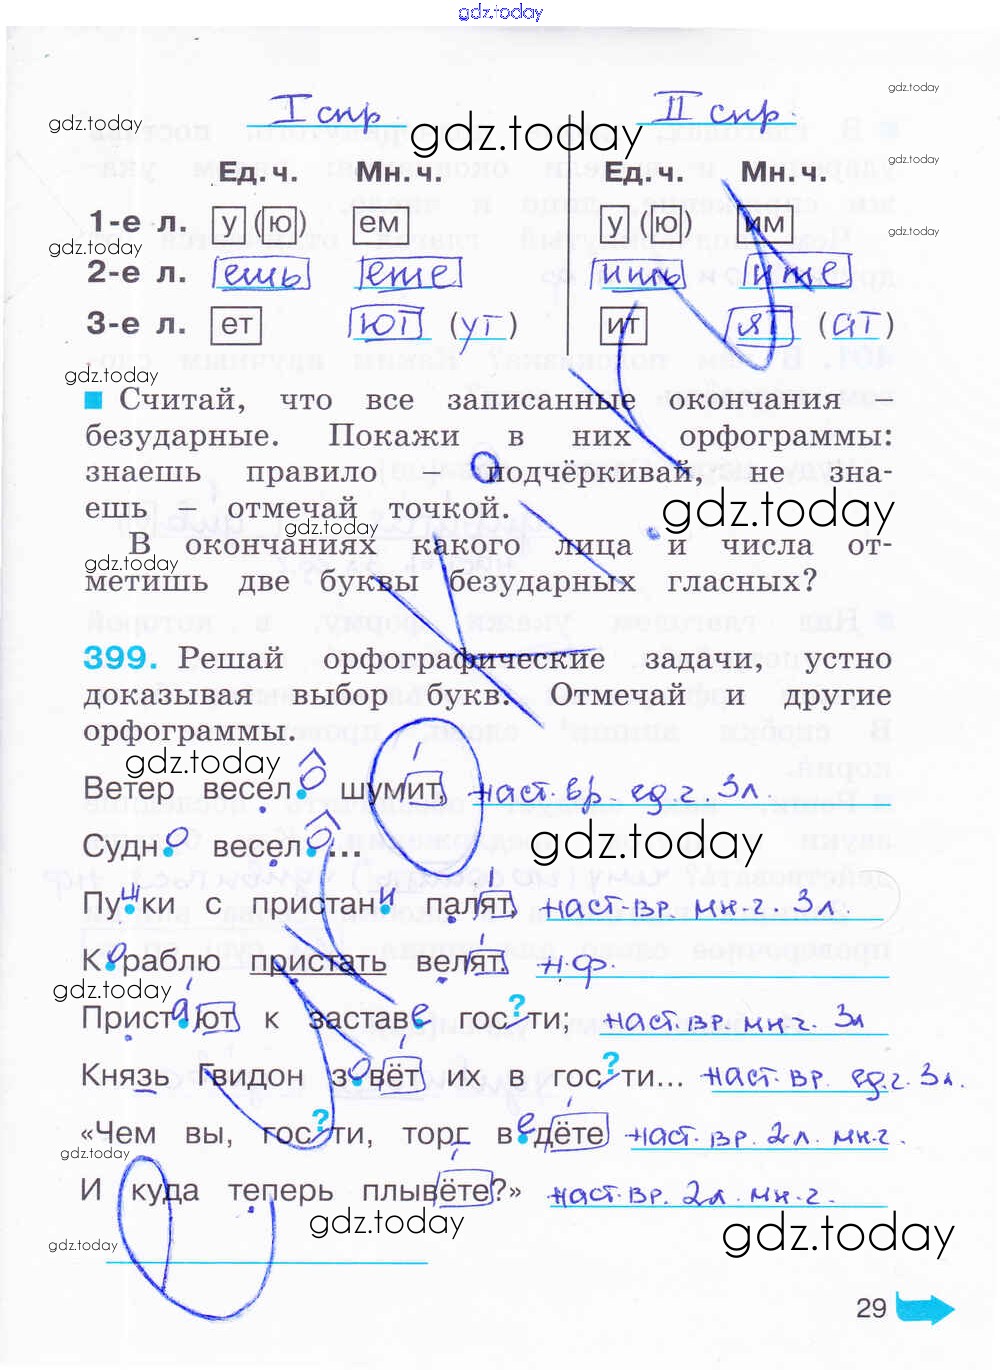 gdz.today
I спр. II спр.
gdz.today gdz.today gdz.today
Ед. ч. Мн. ч. Ед. ч. Мн. ч.
gdz.today
1-е л. у (ю) ем у (ю) им
gdz.today gdz.today
2-е л. ешь ете ишь ите
3-е л. ет ют (ут) ит ят (ат)
gdz.today
Считай, что все записанные окончания –
безударные. Покажи в них орфограммы:
знаешь правило – подчёркивай, не зна-
ешь – отмечай точкой.
gdz.today gdz.today
В окончаниях какого лица и числа от-
gdz.today
метишь две буквы безударных гласных?
399. Решай орфографические задачи, устно
доказывая выбор букв. Отмечай и другие
орфограммы.
gdz.today
Ветер весело шумит, наст. вр. ед. ч. 3 л.
Судно весело...
gdz.today
Пушки с пристани палят, наст. вр. мн. ч. 3 л.
Кораблю пристать велят. н.ф.
gdz.today
Пристают к заставе гос?ти; наст. вр. мн. ч. 3 л
Князь Гвидон зовёт их в гос?ти... наст. вр. ед. ч. 3 л.
«Чем вы, гос?ти, торг ведёте наст. вр. 2 л. мн. ч.
gdz.today
И куда теперь плывёте?» наст. вр. 2 л. мн. ч.
gdz.today gdz.today gdz.today
29